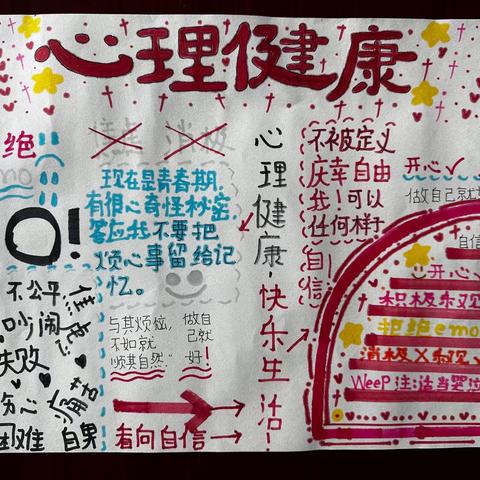 心理健康
绝
emo
NO!
不公平
焦虑
吵闹
失败
伤心
痛苦
困难 自卑
焦虑 消极
现在是青春期,
有很心奇怪秘密,
答应我不要把
烦心事留给记
忆。
与其烦恼,
不如就
"顺其自然"
做自
己就
好!
看向自信
心理健康!快乐生活!
不被定义
庆幸自由
我!可以
任何样子
自信!
开心✓
做自己就
自信
开心
积极乐观
拒绝emo
消极×乐观✓
WeeP注:适当哭泣